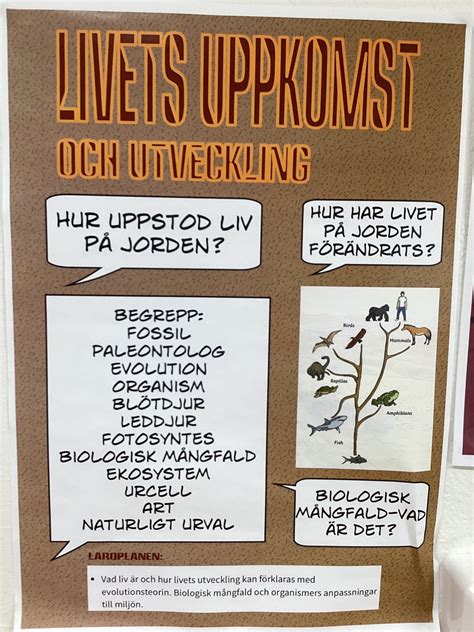 LIVETS UPPKOMST
OCH UTVECKLING
HUR UPPSTOD LIV
PÅ JORDEN?
HUR HAR LIVET
PÅ JORDEN
FÖRÄNDRATS?
BEGREPP:
FOSSIL
PALEONTOLOG
EVOLUTION
ORGANISM
BLÖTDJUR
LEDDJUR
FOTOSYNTES
BIOLOGISK MÅNGFALD
EKOSYSTEM
URCELL
ART
NATURLIGT URVAL
Birds
Mammals
Reptiles
Amphibians
Fish
BIOLOGISK
MÅNGFALD-VAD
ÄR DET?
LÄROPLANEN:
• Vad liv är och hur livets utveckling kan förklaras med
evolutionsteorin. Biologisk mångfald och organismers anpassningar
till miljön.